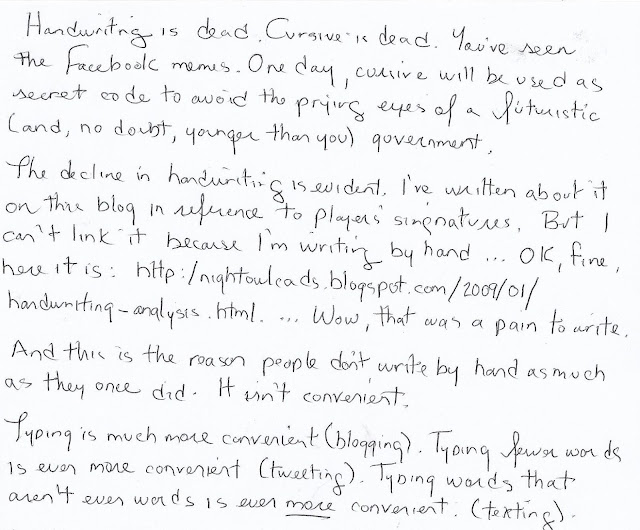 Handwriting is dead. Cursive is dead. You've seen
the Facebook memes. One day, cursive will be used as
secret code to avoid the prying eyes of a futuristic
(and, no doubt, younger than you) government.
The decline in handwriting is evident. I've written about it
on this blog in reference to players' singnatures. But I
can't link it because I'm writing by hand ... OK, fine,
here it is: http:/nightowlcards.blogspot.com/2009/01/
handwriting-analysis.html. ... Wow, that was a pain to write.
And this is the reason people don't write by hand as much
as they once did. It isn't convenient.
Typing is much more convenient (blogging). Typing fewer words
is even more convenient (tweeting). Typing words that
aren't even words is even more convenient. (texting).